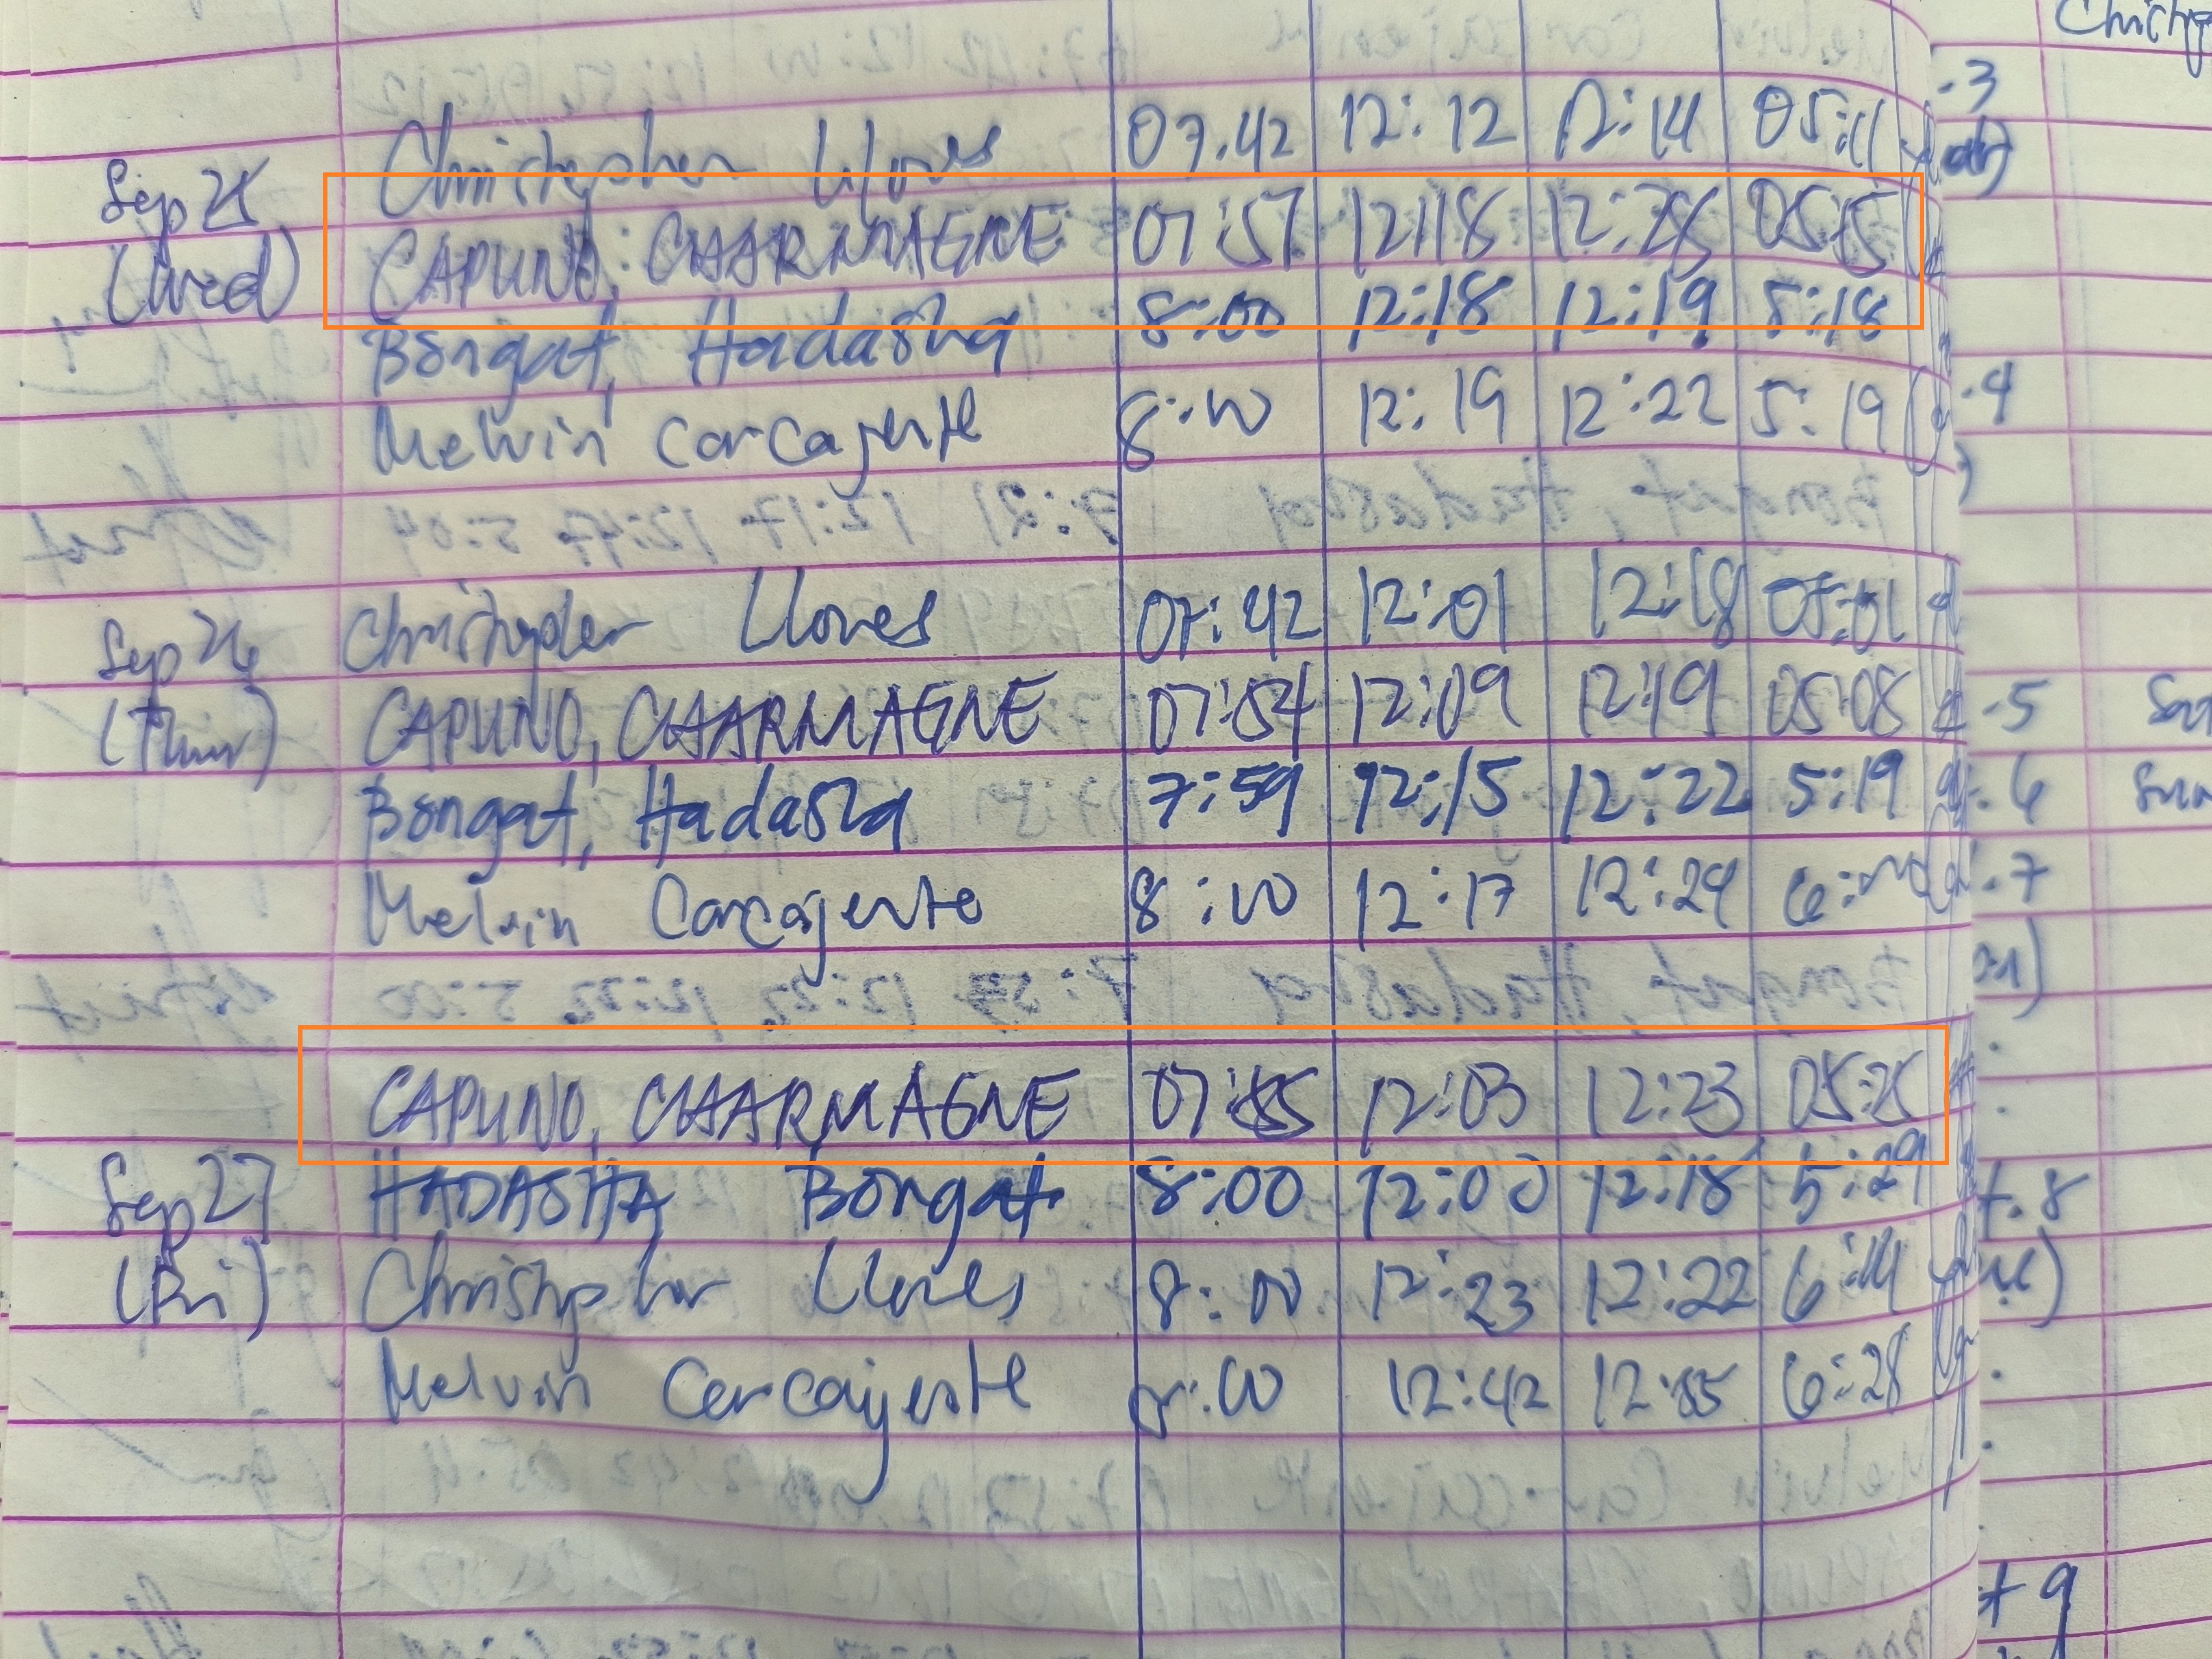 Sep 25 Christopher Llones 07:42 12:12 12:14 05:11
(Wed) CAPUNO, CHARMAGNE 07:57 12:18 12:28 05:15
Bongat, Hadasha 8:00 12:18 12:19 5:18
Melvin Corcajente 8:00 12:19 12:22 5:19
Sep 26 Christopher Llones 07:42 12:01 12:18 05:01
(Thur) CAPUNO, CHARMAGNE 07:54 12:09 12:19 05:08
Bongat, Hadasha 7:59 12:15 12:22 5:19
Melvin Corcajente 8:00 12:17 12:24
CAPUNO, CHARMAGNE 07:55 12:03 12:23 05:25
Sep 27 HADASHA Bongat 8:00 12:00 12:18 5:29
(Fri) Christopher Llones 8:00 12:23 12:22 6:14
Melvin Corcajente 8:00 12:42 12:55 6:28